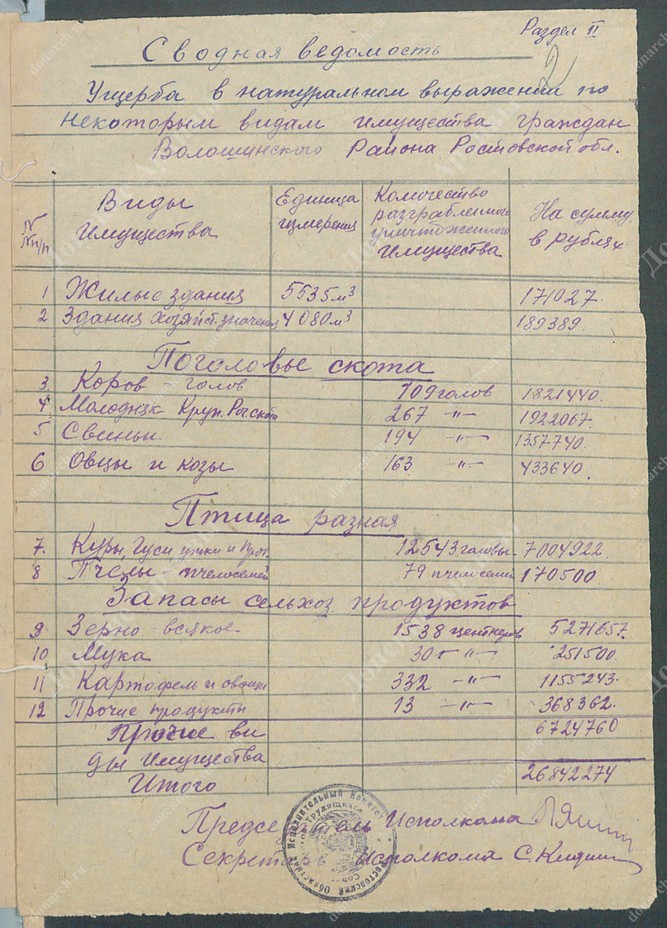 Раздел II
2
Сводная ведомость
Ущерба в натуральном выражении по
некоторым видам имущества граждан
Волошинского Района Ростовской обл.
№ №п/п Виды Имущества Единица измерения Количество разграбленного уничтоженного имущества На сумму в рублях
1 Жилые здания 5535 м³ 171027
2 Здания хозяйст. значения 4080 м³ 189389
Поголовье скота
3 Коров - голов 709 голов 1821440.
4 Молодняк Круп. Рог скота 267 -"- 1922067.
5 Свиньи 194 -"- 1357740.
6 Овцы и козы 163 -"- 433640.
Птица разная
7. Куры, Гуси утки и проч. 12543 головы 7004922.
8 Пчелы - пчелосемей 79 пчелосемей 170500
Запасы сельхоз продуктов
9 Зерно - всякое 1538 центнеров 5271657.
10 Мука 305 -"- 251500
11 Картофель и овощи 332 -"- 1155243.
12 Прочие продукты 13 -"- 368362.
Прочие ви 6724760
ды имущества
Итого 26842274
Председатель Исполкома
Секретарь Исполкома
Исполнительный Комитет